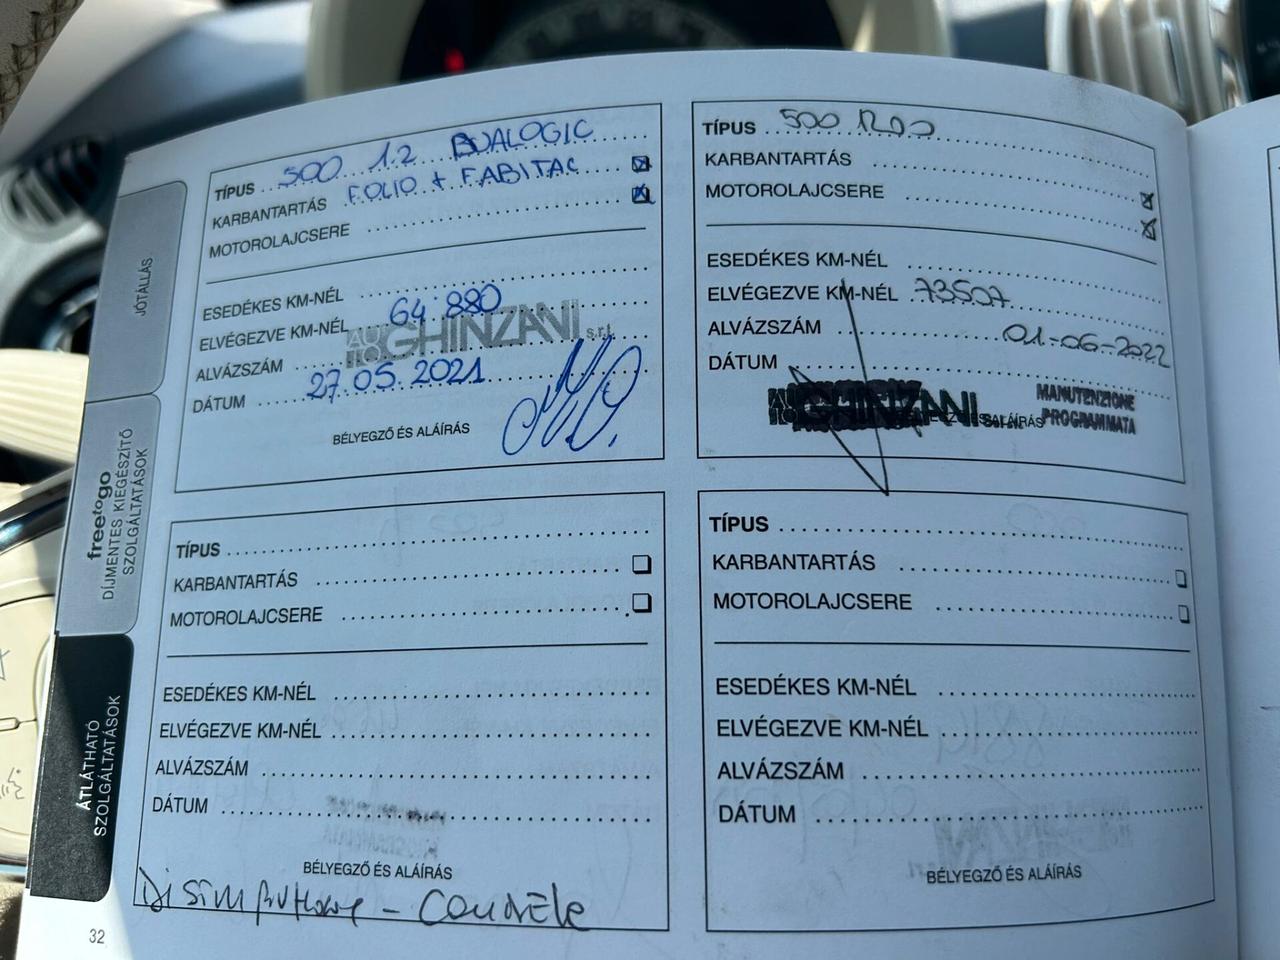 JÓTÁLLÁS
freetogo
DÍJMENTES KIEGÉSZÍTŐ
SZOLGÁLTATÁSOK
ÁTLÁTHATÓ
SZOLGÁLTATÁSOK
TÍPUS 500 1.2 DUALOGIC
KARBANTARTÁS FOLIO + FABITAC
MOTOROLAJCSERE
ESEDÉKES KM-NÉL
ELVÉGEZVE KM-NÉL 64 880
AUTO GHINZANI s.r.l.
ALVÁZSZÁM
DÁTUM 27.05.2021
BÉLYEGZŐ ÉS ALÁÍRÁS
TÍPUS 500
KARBANTARTÁS
MOTOROLAJCSERE
ESEDÉKES KM-NÉL
ELVÉGEZVE KM-NÉL 73507
ALVÁZSZÁM
DÁTUM 01-06-2022
AUTO GHINZANI s.r.l.
MANUTENZIONE
PROGRAMMATA
TÍPUS
KARBANTARTÁS
MOTOROLAJCSERE
ESEDÉKES KM-NÉL
ELVÉGEZVE KM-NÉL
ALVÁZSZÁM
DÁTUM
BÉLYEGZŐ ÉS ALÁÍRÁS
TÍPUS
KARBANTARTÁS
MOTOROLAJCSERE
ESEDÉKES KM-NÉL
ELVÉGEZVE KM-NÉL
ALVÁZSZÁM
DÁTUM
BÉLYEGZŐ ÉS ALÁÍRÁS
32